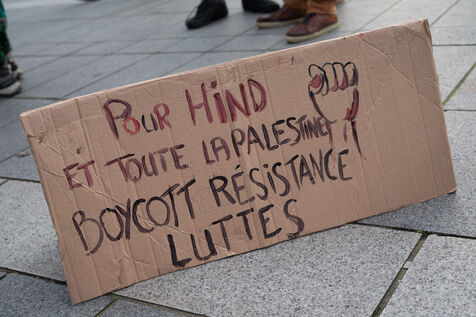 POUR HIND
ET TOUTE LA PALESTINE
BOYCOTT RÉSISTANCE
LUTTES